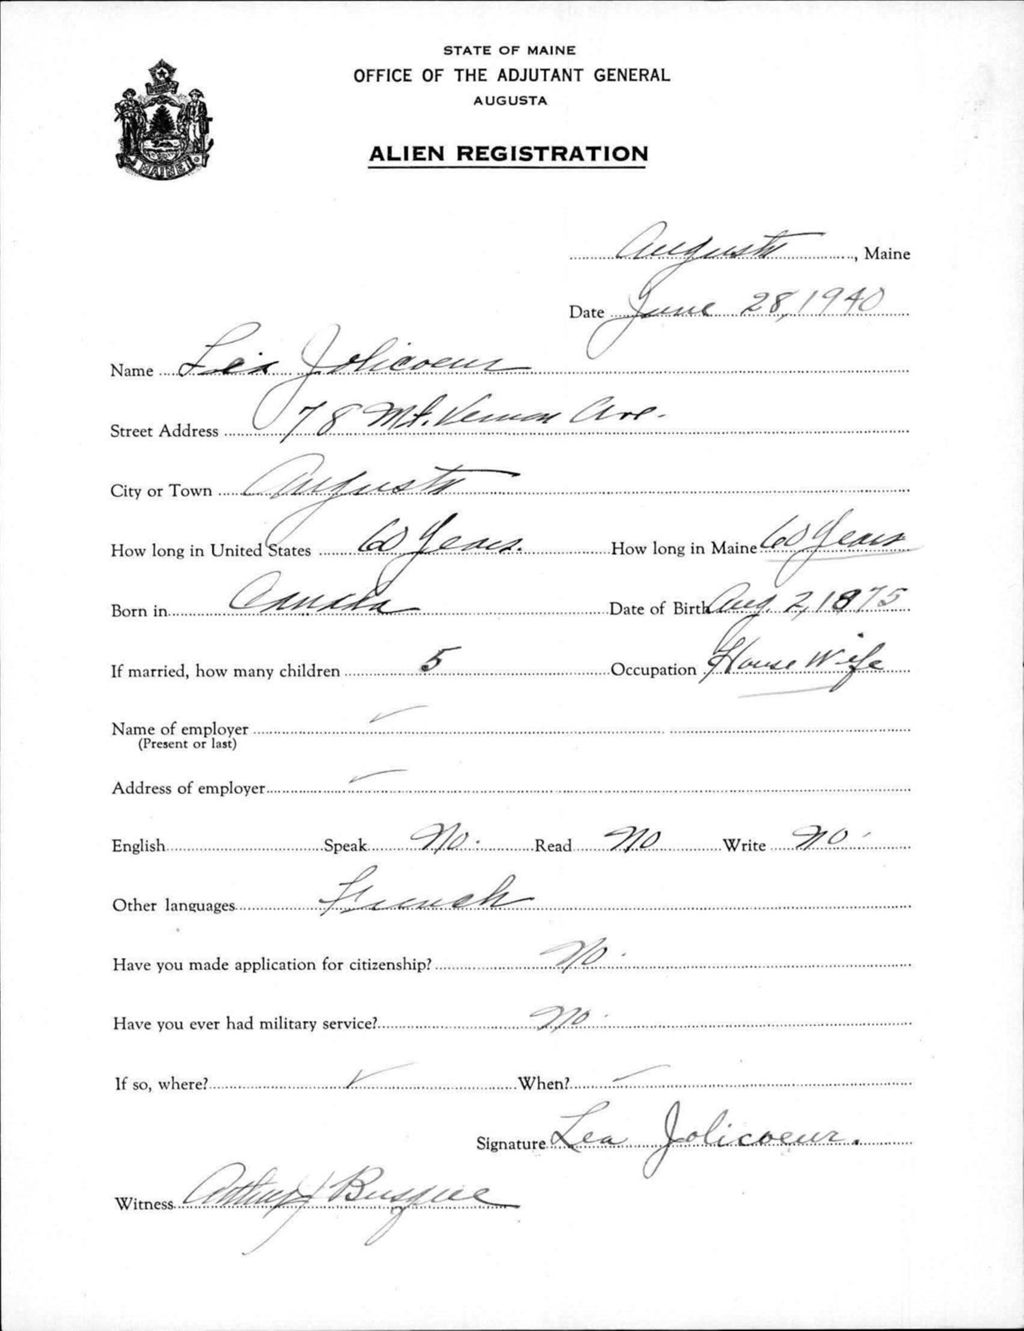 STATE OF MAINE
OFFICE OF THE ADJUTANT GENERAL
AUGUSTA
ALIEN REGISTRATION
MAINE
Augusta, Maine
Date June 28, 1940
Name Lea Jolicoeur
Street Address 78 Mt. Vernon Ave.
City or Town Augusta
How long in United States 60 Years. How long in Maine 60 Years
Born in Canada Date of Birth Aug. 2, 1875
If married, how many children 5 Occupation House Wife
Name of employer
(Present or last)
Address of employer
English Speak No. Read No Write No
Other languages French
Have you made application for citizenship? No.
Have you ever had military service? No.
If so, where? When?
Signature Lea Jolicoeur.
Witness Arthur J Busque